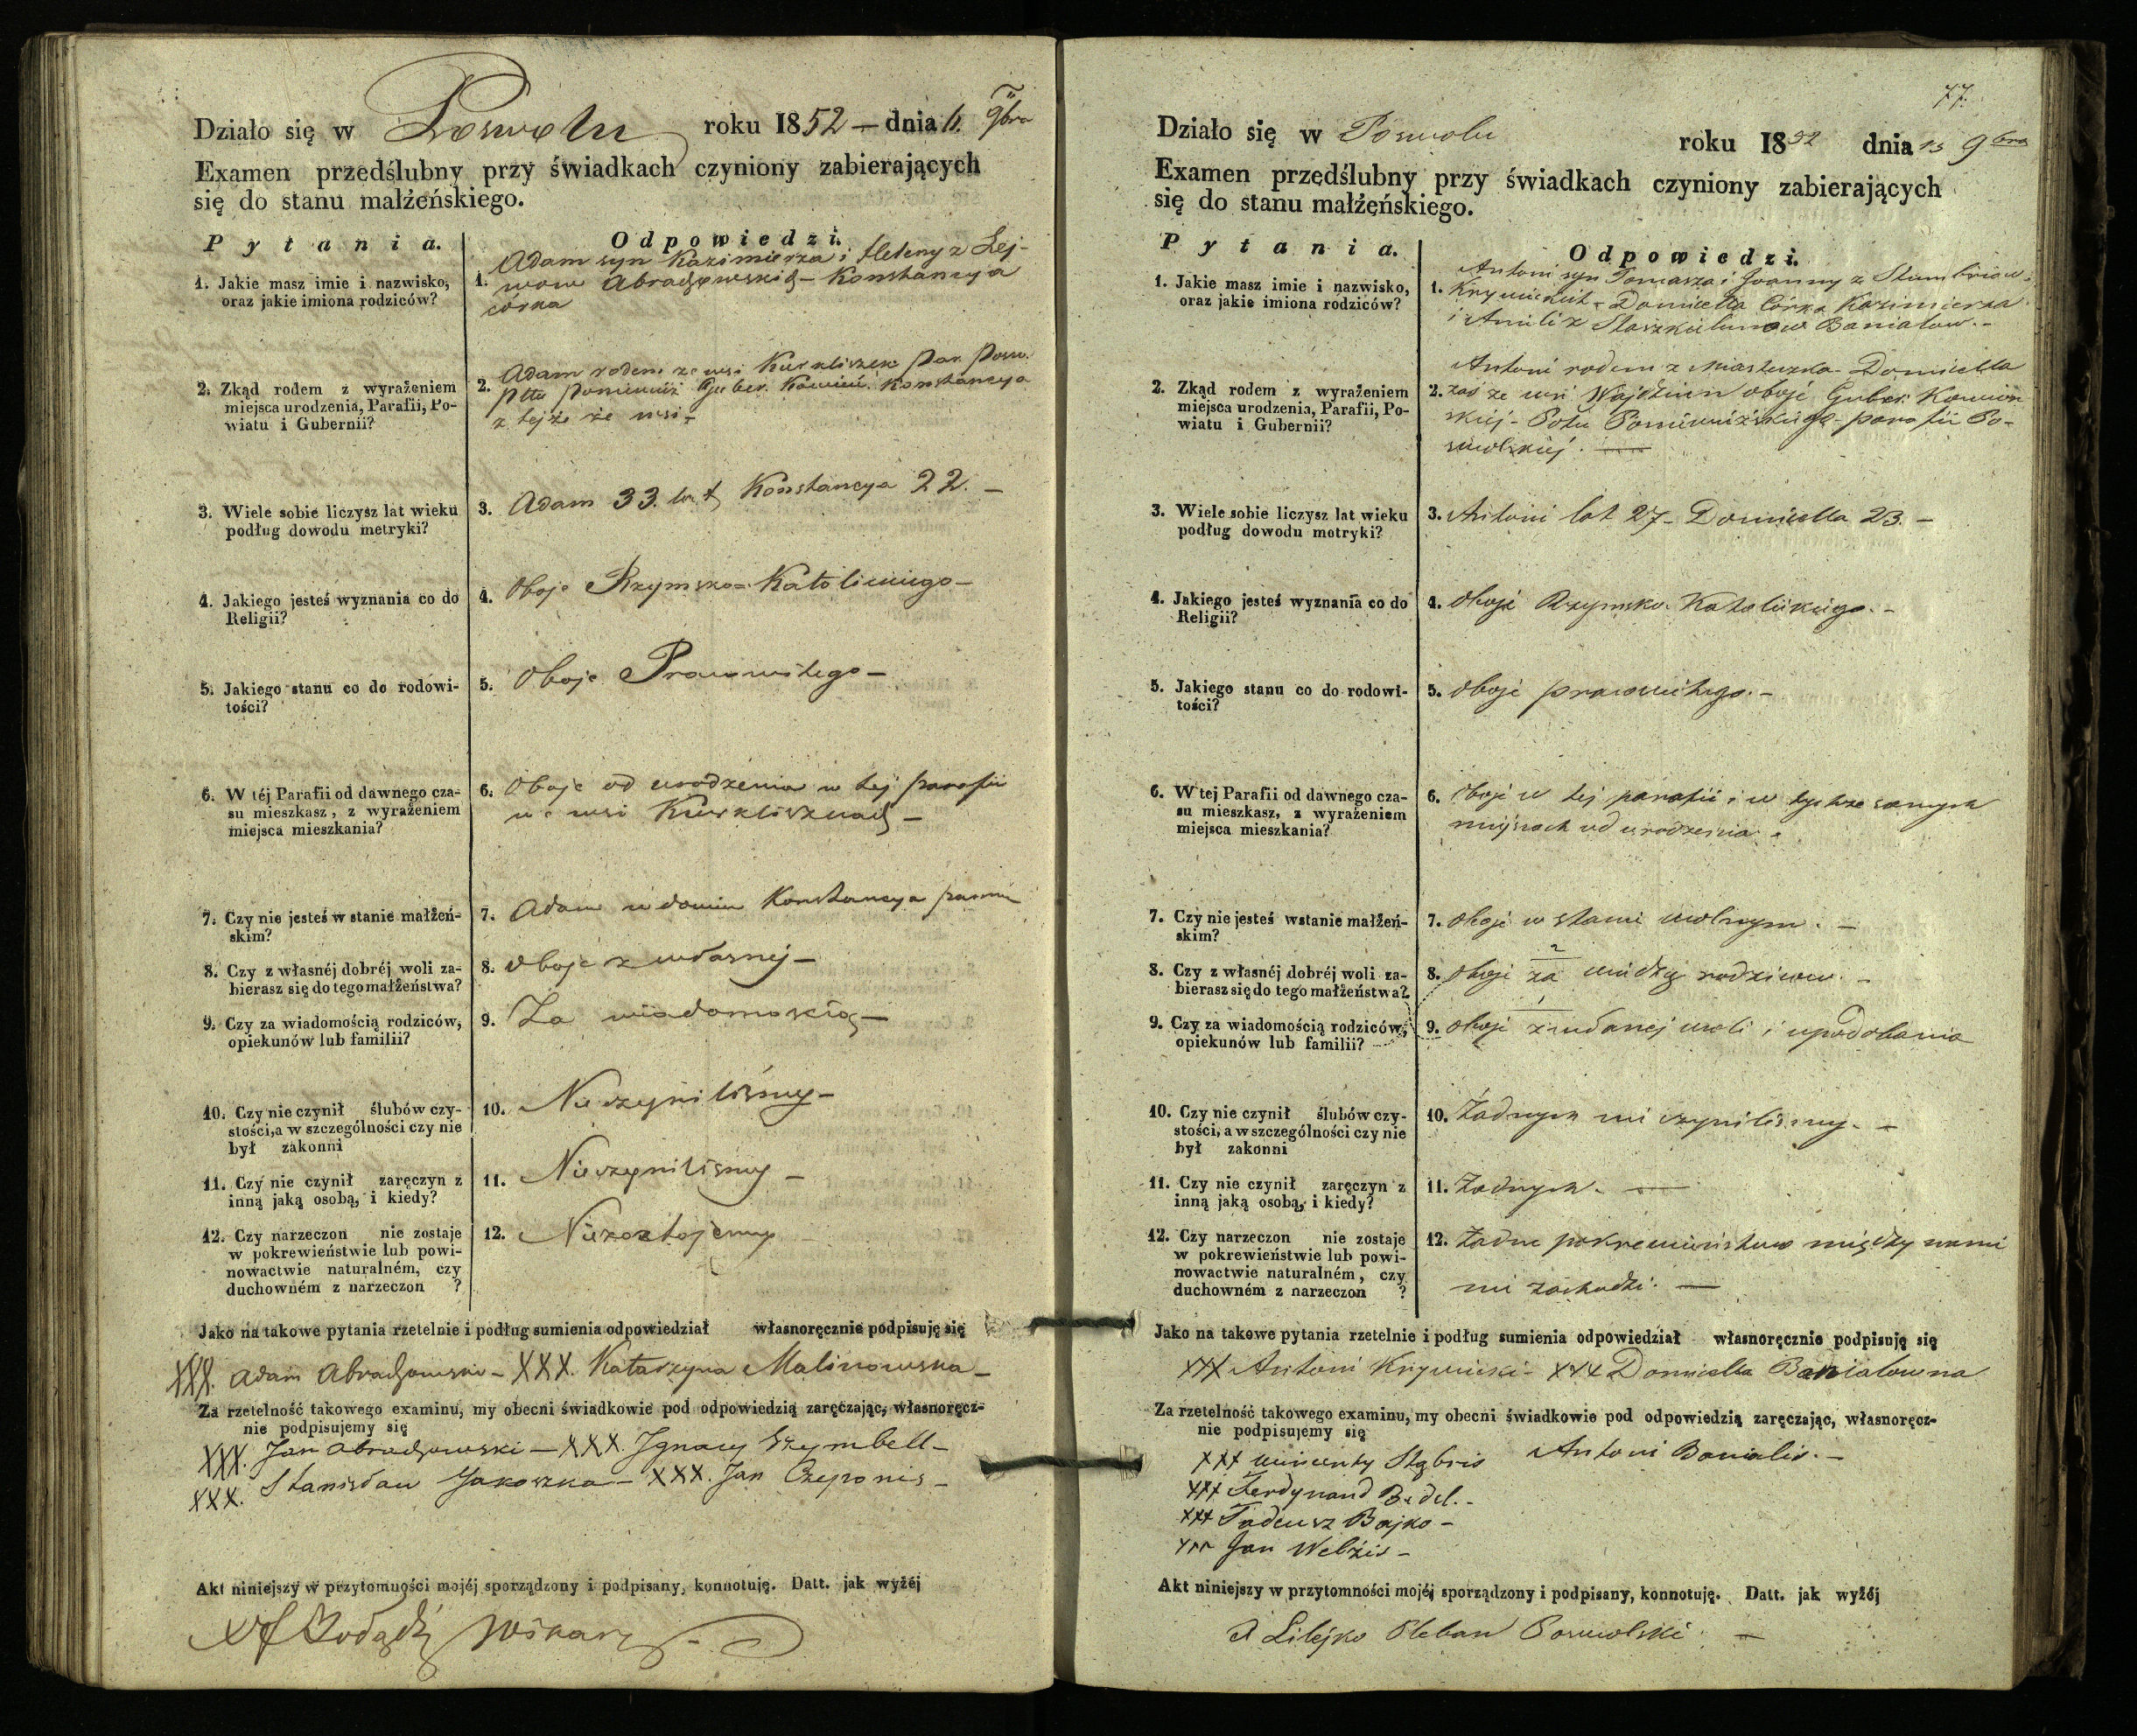 Działo się w Poswolu roku 1852 — dnia 6. 9bra
Examen przedślubny przy świadkach czyniony zabierających
się do stanu małżeńskiego.
Pytania. Odpowiedzi.
1. Jakie masz imie i nazwisko,
oraz jakie imiona rodziców?
1. Adam syn Kazimierza i Heleny z Lej-
Konstancya
córka
2. Zkąd rodem z wyrażeniem
miejsca urodzenia, Parafii, Po-
wiatu i Gubernii?
2. Adam rodem ze wsi Kurkliszek Par. Posw.
Pttu Poniewież Guber. Kowień. Konstancya
z tejże że wsi –
3. Wiele sobie liczysz lat wieku
podług dowodu metryki?
3. Adam 33. lat, Konstancya 22. –
4. Jakiego jesteś wyznania co do
Religii?
4. Oboje Rzymsko-Katolickiego –
5. Jakiego stanu co do rodowi-
tości?
5. Oboje Prawowitego –
6. W téj Parafii od dawnego cza-
su mieszkasz, z wyrażeniem
miejsca mieszkania?
6. Oboje od urodzenia w tej parafii
we wsi Kurkliszkach –
7. Czy nie jesteś w stanie małżeń-
skim?
7. Adam wdowiec Konstancya panna
8. Czy z własnéj dobréj woli za-
bierasz się do tego małżeństwa?
8. Oboje z własnej –
9. Czy za wiadomością rodziców,
opiekunów lub familii?
9. Za wiadomością –
10. Czy nie czynił ślubów czy-
stości, a w szczególności czy nie
był zakonni
10. Nieczyniliśmy –
11. Czy nie czynił zaręczyn z
inną jaką osobą, i kiedy?
11. Nieczyniliśmy –
12. Czy narzeczon nie zostaje
w pokrewieństwie lub powi-
nowactwie naturalném, czy
duchowném z narzeczon ?
12. Niezostajemy
Jako na takowe pytania rzetelnie i podług sumienia odpowiedział własnoręcznie podpisuję się
XXX. Adam – XXX. Katarzyna Malinowska –
Za rzetelność takowego examinu, my obecni świadkowie pod odpowiedzią zaręczając, własnoręcz-
nie podpisujemy się
XXX. Jan – XXX. Ignacy Szymbell –
XXX. Stanisław Jakoszka – XXX. Jan Czeponis –
Akt niniejszy w przytomności mojéj sporządzony i podpisany, konnotuję. Datt. jak wyżéj
Wikary
77.
Działo się w Poswolu roku 1852 dnia 13 9bra
Examen przedślubny przy świadkach czyniony zabierających
się do stanu małżeńskiego.
Pytania. Odpowiedzi.
1. Jakie masz imie i nazwisko,
oraz jakie imiona rodziców?
1. Antoni syn Tomasza i Joanny z
Domicella Córka Kazimierza
i Anieli z Baniałow. –
2. Zkąd rodem z wyrażeniem
miejsca urodzenia, Parafii, Po-
wiatu i Gubernii?
2. Antoni rodem z Miasteczka – Domicella
zaś ze wsi Wojdziun oboje Guber. Kowień
skiej – Pottu Poniewiżskiego – parafii Po-
swolskiej. —
3. Wiele sobie liczysz lat wieku
podług dowodu metryki?
3. Antoni lat 27 – Domicella 23. –
4. Jakiego jesteś wyznania co do
Religii?
4. Oboje Rzymsko-Katolickiego. –
5. Jakiego stanu co do rodowi-
tości?
5. Oboje prawowitego. –
6. W tej Parafii od dawnego cza-
su mieszkasz, z wyrażeniem
miejsca mieszkania?
6. Oboje w tej parafii i w tychże samych
miejscach od urodzenia. –
7. Czy nie jesteś wstanie małżeń-
skim?
7. Oboje w stanie wolnym. –
8. Czy z własnéj dobréj woli za-
bierasz się do tego małżeństwa?
2
8. Oboje za wiedzą rodziców. –
9. Czy za wiadomością rodziców,
opiekunów lub familii?
1
9. Oboje z własnej woli i upodobania
10. Czy nie czynił ślubów czy-
stości, a w szczególności czy nie
był zakonni
10. Żadnych nie czyniliśmy. –
11. Czy nie czynił zaręczyn z
inną jaką osobą, i kiedy?
11. Żadnych. —
12. Czy narzeczon nie zostaje
w pokrewieństwie lub powi-
nowactwie naturalném, czy
duchowném z narzeczon ?
12. Żadne pokrewieństwo między nami
nie zachodzi. —
Jako na takowe pytania rzetelnie i podług sumienia odpowiedział własnoręcznie podpisuję się
XXX Antoni Krywicki – XXX Domicella Baniałowna
Za rzetelność takowego examinu, my obecni świadkowie pod odpowiedzią zaręczając, własnoręcz-
nie podpisujemy się
XXX Wincenty Stąbris Antoni Banialis. –
XXX Ferdynand Bedel. –
XXX Tadeusz Bajko –
XXX Jan Welżis –
Akt niniejszy w przytomności mojéj sporządzony i podpisany, konnotuję. Datt. jak wyżéj
Lilejko Pleban Poswolski. —